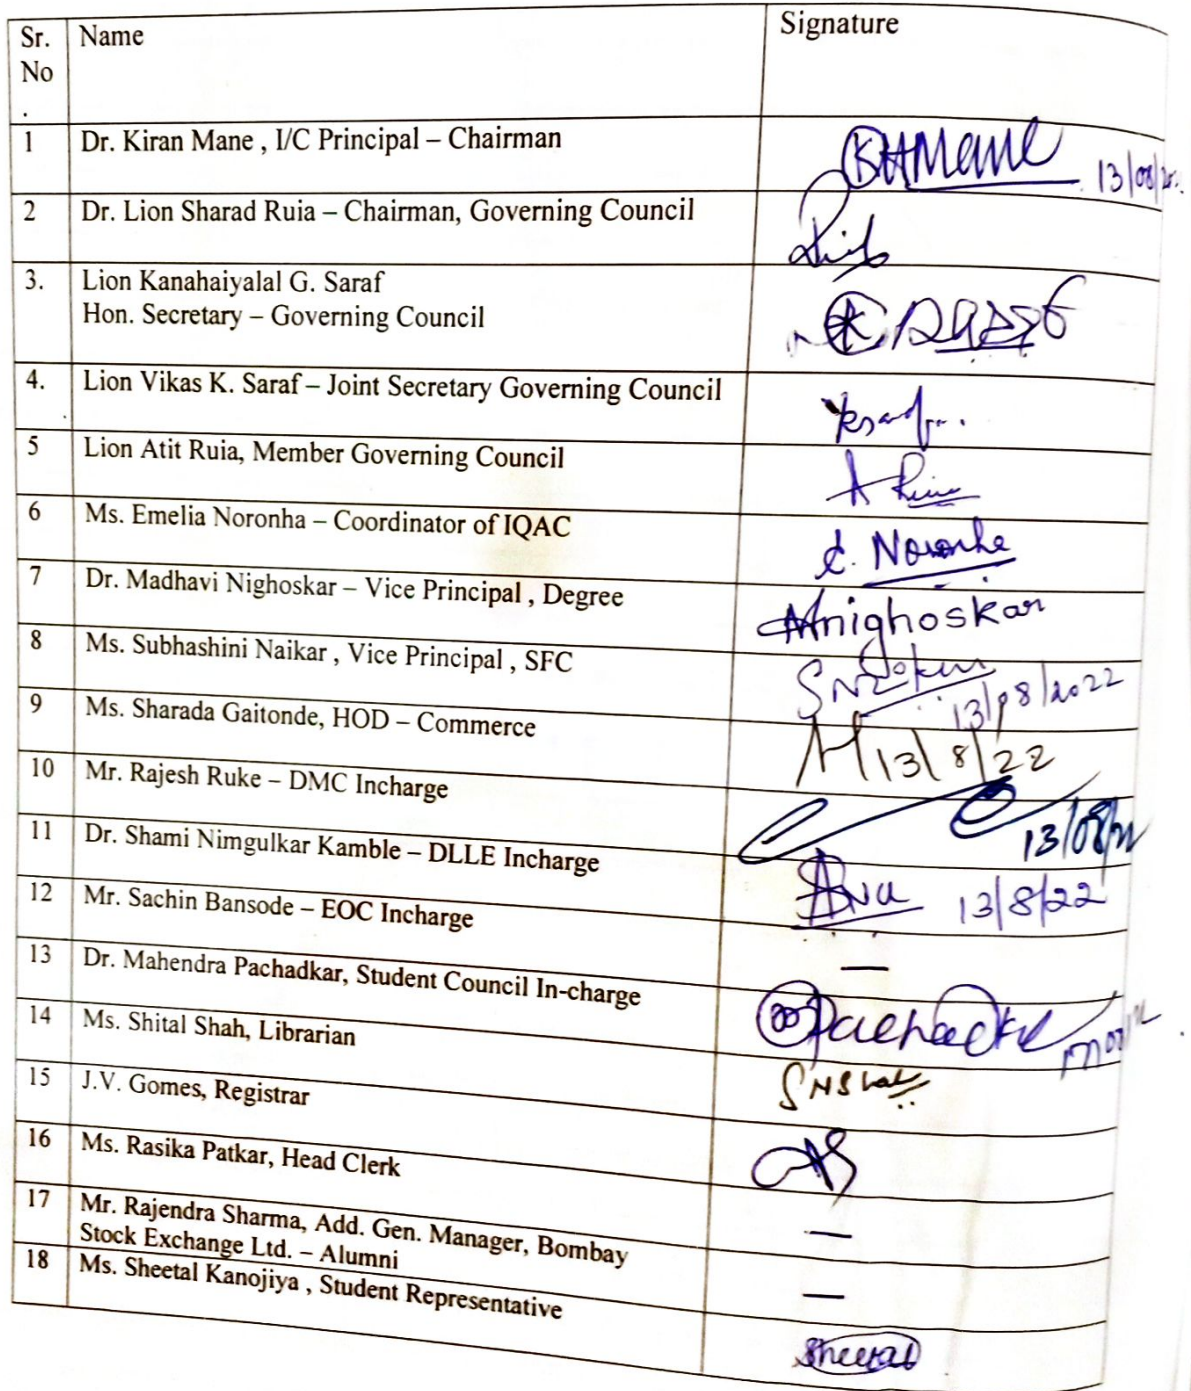 Sr. No . Name Signature
1 Dr. Kiran Mane , I/C Principal – Chairman KHMane 13/08/
2 Dr. Lion Sharad Ruia – Chairman, Governing Council
3. Lion Kanahaiyalal G. Saraf
Hon. Secretary – Governing Council
4. Lion Vikas K. Saraf – Joint Secretary Governing Council
5 Lion Atit Ruia, Member Governing Council
6 Ms. Emelia Noronha – Coordinator of IQAC E. Noronha
7 Dr. Madhavi Nighoskar – Vice Principal , Degree Mnighoskar
8 Ms. Subhashini Naikar , Vice Principal , SFC 13/08/2022
9 Ms. Sharada Gaitonde, HOD – Commerce 13/8/22
10 Mr. Rajesh Ruke – DMC Incharge 13/08/22
11 Dr. Shami Nimgulkar Kamble – DLLE Incharge 13/8/22
12 Mr. Sachin Bansode – EOC Incharge —
13 Dr. Mahendra Pachadkar, Student Council In-charge
14 Ms. Shital Shah, Librarian SNShah
15 J.V. Gomes, Registrar
16 Ms. Rasika Patkar, Head Clerk —
17 Mr. Rajendra Sharma, Add. Gen. Manager, Bombay
Stock Exchange Ltd. – Alumni —
18 Ms. Sheetal Kanojiya , Student Representative Sheetal